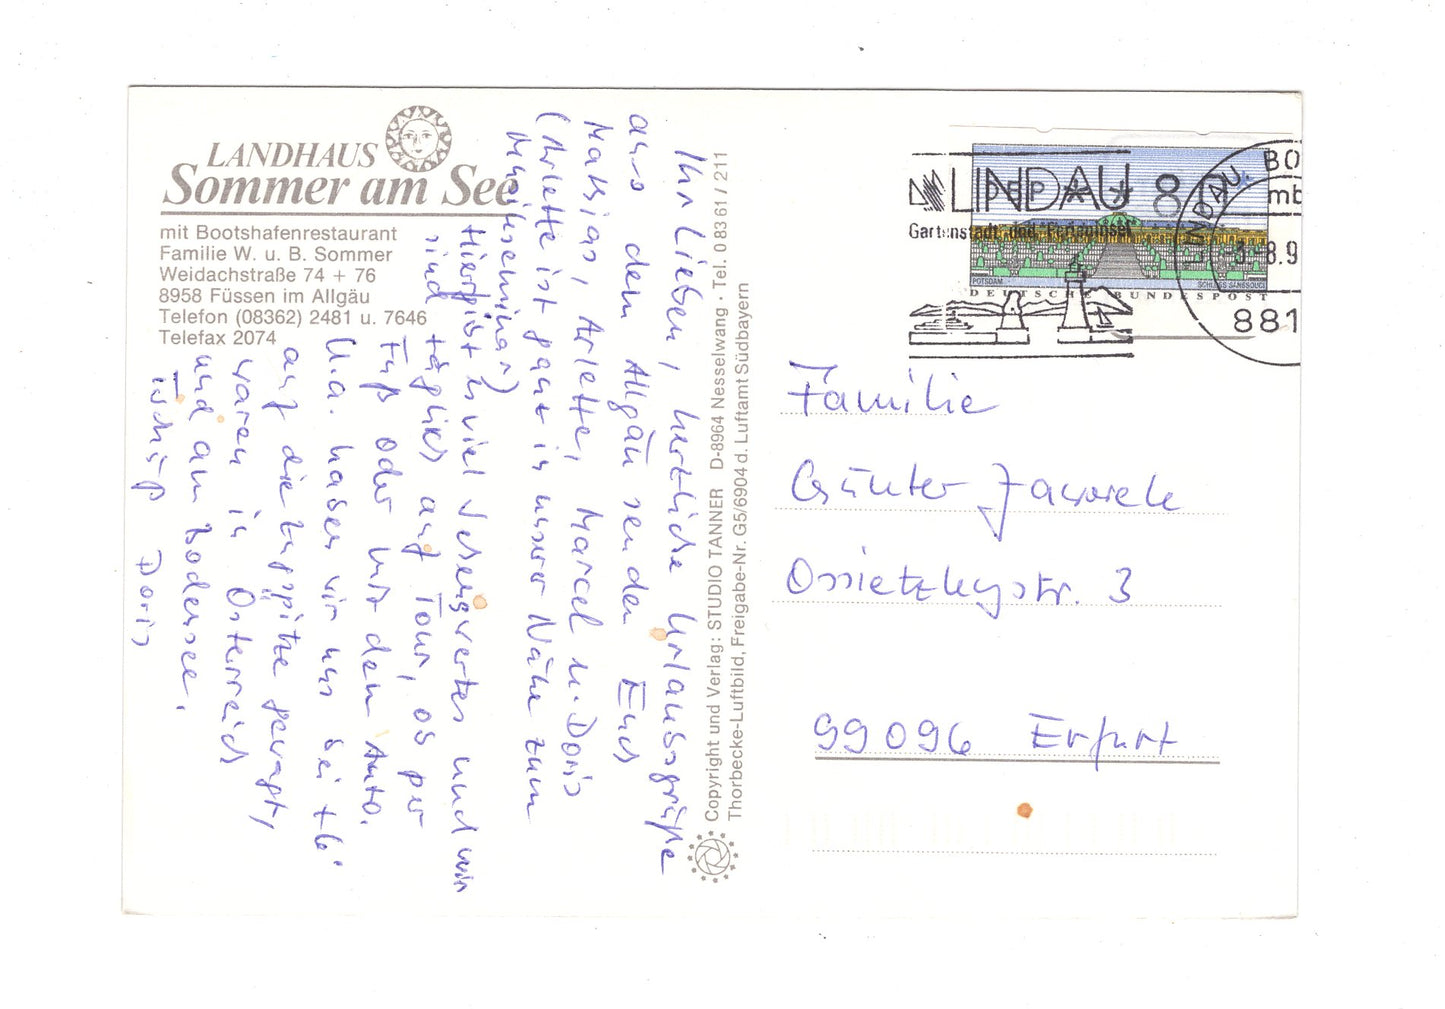 LANDHAUS
Sommer am See
mit Bootshafenrestaurant
Familie W. u. B. Sommer
Weidachstraße 74 + 76
8958 Füssen im Allgäu
Telefon (08362) 2481 u. 7646
Telefax 2074
Ihr Lieben, herzliche Urlaubsgrüße
aus dem Allgäu senden Euch
Mathias, Arlette, Marcel u. Doris
(Arlette ist ganz in unserer Nähe zum
Musikseminar)
Hier gibt es viel Sehenswertes und wir
sind täglich auf Tour, ob per
Fuß oder mit dem Auto.
U.a. haben wir uns bei +6°
auf die Zugspitze gewagt,
waren in Österreich
und am Bodensee.
Tschüß Doris
Copyright und Verlag: STUDIO TANNER D-8964 Nesselwang · Tel. 0 83 61 / 211
Thorbecke-Luftbild, Freigabe-Nr. G5/6904 d. Luftamt Südbayern
LINDAU
Gartenstadt und Ferieninsel
LINDAU, BO
mb
-3.-8.9
881
8
POTSDAM
SCHLOSS SANSSOUCI
DEUTSCHE BUNDESPOST
Familie
Günter
Ossietzkystr. 3
99096 Erfurt